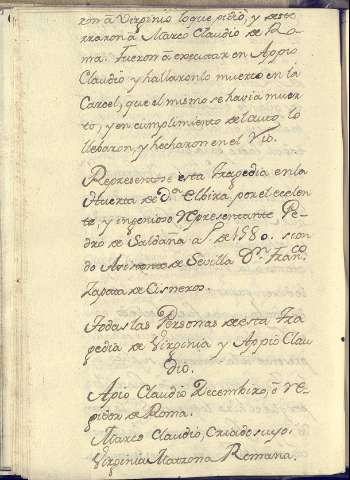 ron â Virginio lo que pidio, y deste
rraron â Marco Claudio de Ro
ma. Fueron â executar en Appio
Claudio y hallaronlo muerto en la
Carcel, que el mismo se havia muer
to; y en cumplimiento del auto lo
llebaron, y hecharon en el Rio.
Representose esta tragedia en la
Huerta de Dª Elbira, por el excelen
te, y ingenioso Representante, Pe
dro de Saldaña aº de 1580. sien
do Asistente de Sevilla Dn. Franco.
Zapata de Cisneros.
Todas las Personas de esta Tra
gedia de Virginia y Appio Clau
dio.
Apio Claudio Decembiro, ô re
gidor de Roma.
Marco Claudio, Criado suyo.
Virginia Matrona Romana.